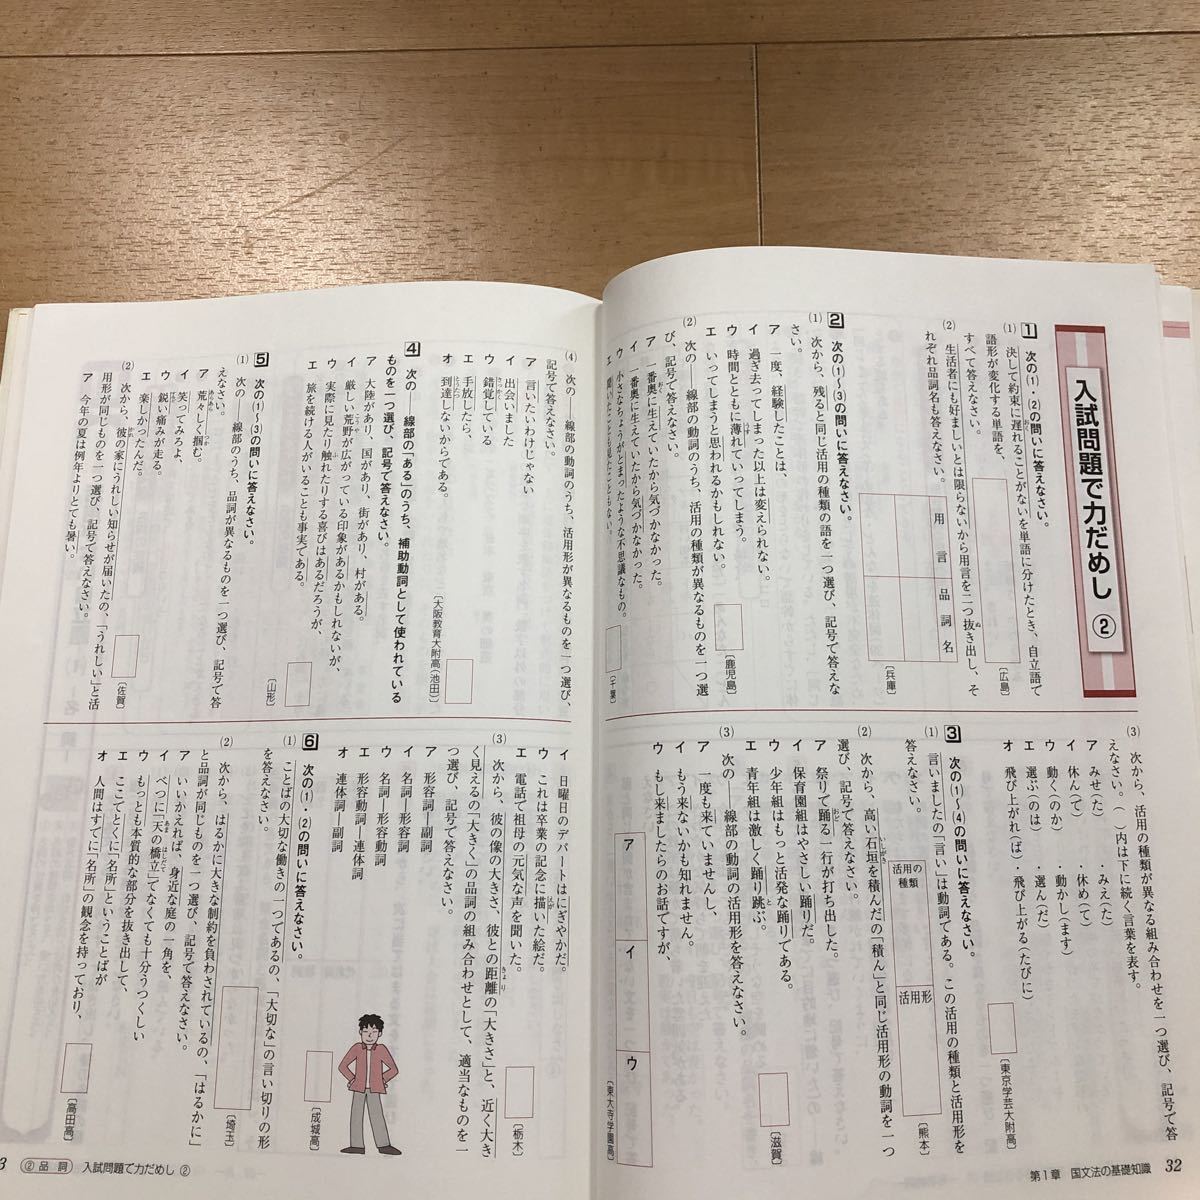 入試問題で力だめし ②
1 次の(1)・(2)の問いに答えなさい。
(1) 決して約束に遅れることがないを単語に分けたとき、自立語で
語形が変化する単語を、
すべて答えなさい。
〔広島〕
(2) 生活者にも好ましいとは限らないから用言を二つ抜き出し、そ
れぞれ品詞名も答えなさい。
用言
品詞名
〔兵庫〕
2 次の(1)〜(3)の問いに答えなさい。
(1) 次から、残ると同じ活用の種類の語を一つ選び、記号で答えな
さい。
ア 一度、経験したことは、
イ 過ぎ去ってしまった以上は変えられない。
ウ 時間とともに薄れていってしまう。
エ いってしまうと思われるかもしれない。
〔鹿児島〕
(2) 次の――線部の動詞のうち、活用の種類が異なるものを一つ選
び、記号で答えなさい。
ア 一番奥に生えていたから気づかなかった。
イ 一番奥に生えていたから気づかなかった。
ウ 小さなちょうがとまったような不思議なもの。
エ 聞いたことも見たこともない。
〔千葉〕
(3) 次から、活用の種類が異なる組み合わせを一つ選び、記号で答
えなさい。( )内は下に続く言葉を表す。
ア みせ(た) ・みえ(た)
イ 休ん(で) ・休め(て)
ウ 動く(のか) ・動かし(ます)
エ 選ぶ(のは) ・選ん(だ)
オ 飛び上がれ(ば)・飛び上がる(たびに)
〔東京学芸大附高〕
3 次の(1)〜(4)の問いに答えなさい。
(1) 言いましたの「言い」は動詞である。この活用の種類と活用形を
答えなさい。
活用の種類
活用形
〔熊本〕
(2) 次から、高い石垣を積んだの「積ん」と同じ活用形の動詞を一つ
選び、記号で答えなさい。
ア 祭りで踊る一行が打ち出した。
イ 保育園組はやさしい踊りだ。
ウ 少年組はもっと活発な踊りである。
エ 青年組は激しく踊り跳ぶ。
〔滋賀〕
(3) 次の――線部の動詞の活用形を答えなさい。
ア 一度も来ていませんし、
イ もう来ないかも知れません。
ウ もし来ましたらのお話ですが、
ア
イ
ウ
〔東大寺学園高〕
第1章 国文法の基礎知識 32
(4) 次の――線部の動詞のうち、活用形が異なるものを一つ選び、
記号で答えなさい。
ア 言いたいわけじゃない
イ 出会いました
ウ 錯覚している
エ 手放したら、
オ 到達しないからである。
〔大阪教育大附高(池田)〕
4 次の――線部の「ある」のうち、補助動詞として使われている
ものを一つ選び、記号で答えなさい。
ア 大陸があり、国があり、街があり、村がある。
イ 厳しい荒野が広がっている印象があるかもしれないが、
ウ 実際に見たり触れたりする喜びはあるだろうが、
エ 旅を続ける人がいることも事実である。
〔山形〕
5 次の(1)〜(3)の問いに答えなさい。
(1) 次の――線部のうち、品詞が異なるものを一つ選び、記号で答
えなさい。
ア 荒々しく掴む。
イ 笑ってみろよ、
ウ 鋭い痛みが走る。
エ 楽しかったんだ。
〔佐賀〕
(2) 次から、彼の家にうれしい知らせが届いたの、「うれしい」と活
用形が同じものを一つ選び、記号で答えなさい。
ア 今年の夏は例年よりとても暑い。
イ 日曜日のデパートはにぎやかだ。
ウ これは卒業の記念に描いた絵だ。
エ 電話で祖母の元気な声を聞いた。
〔栃木〕
(3) 次から、彼の像の大きさ、彼との距離の「大きさ」と、近く大き
く見えるの「大きく」の品詞の組み合わせとして、適当なものを一
つ選び、記号で答えなさい。
ア 形容詞―副詞
イ 名詞―形容詞
ウ 名詞―形容動詞
エ 形容動詞―連体詞
オ 連体詞―副詞
〔成城高〕
6 次の(1)・(2)の問いに答えなさい。
(1) ことばの大切な働きの一つであるの、「大切な」の言い切りの形
を答えなさい。
〔埼玉〕
(2) 次から、はるかに大きな制約を負わされているの、「はるかに」
と品詞が同じものを一つ選び、記号で答えなさい。
ア いいかえれば、身近な庭の一角を、
イ べつに「天の橋立」でなくても十分うつくしい
ウ もっとも本質的な部分を抜き出して、
エ ここでとくに「名所」ということばが
オ 人間はすでに「名所」の観念を持っており、
〔高田高〕
3 ②品詞 入試問題で力だめし ②